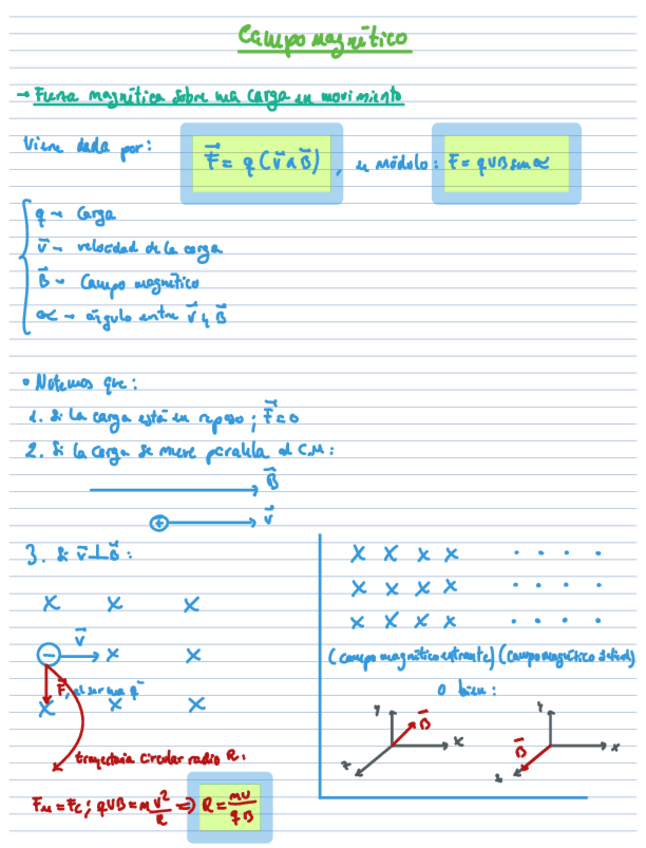 Campo magnético
→ Fuerza magnética sobre una carga en movimiento
Viene dada por: F⃗ = q (v⃗ ∧ B⃗), en módulo: F = qvB sen α
q → Carga
v⃗ → velocidad de la carga
B⃗ → Campo magnético
α → ángulo entre v⃗ y B⃗
• Notemos que:
1. Si la carga está en reposo; F⃗ = 0
2. Si la carga se mueve paralela al C.M:
B⃗
+ v⃗
3. Si v⃗ ⊥ B⃗:
x x x
− v⃗ x x
F⃗, al ser una q⁻
x x x
trayectoria circular radio R:
Fm = Fc; qvB = m v²/R ⇒ R = mv/qB
x x x x . . . .
x x x x . . . .
x x x x . . . .
(campo magnético entrante) (campo magnético saliente)
o bien:
y B⃗ x z
y B⃗ x z